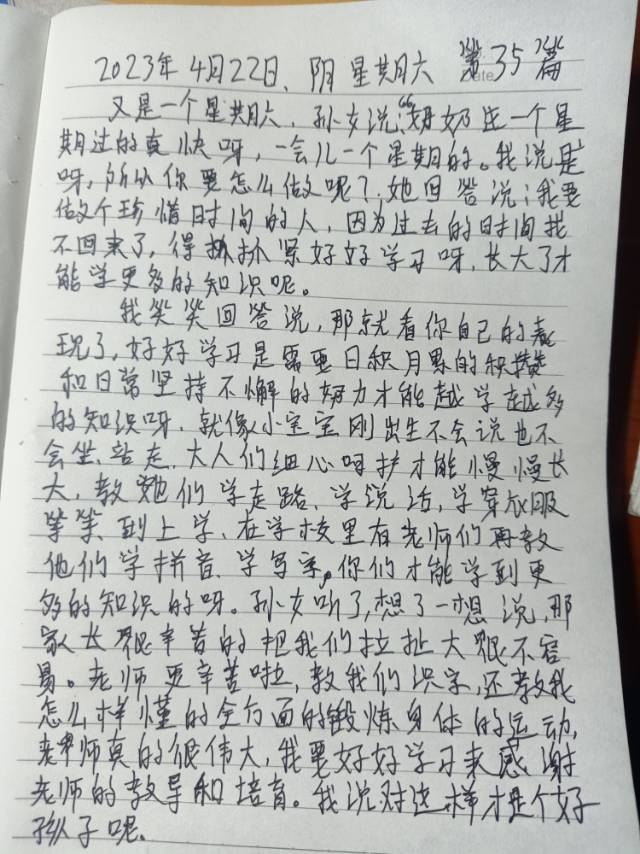 2023年4月22日、阴 星期六 第35篇
又是一个星期六，孙女说：“奶奶生一个星
期过的真快呀，一会儿一个星期的。我说是
呀，所以你要怎么做呢？，她回答说；我要
做个珍惜时间的人，因为过去的时间找
不回来了，得抓抓紧好好学习呀，长大了才
能学更多的知识呢。
我笑笑回答说，那就看你自己的表
现了，好好学习是需要日积月累的积攒
和日常坚持不懈的努力才能越学越多
的知识呀，就像小宝宝刚出生不会说也不
会坐、站走，大人们细心呵护才能慢慢长
大，教她们学走路、学说话，学穿衣服
等等、到上学、在学校里有老师们再教
他们学拼音、学写字，你们才能学到更
多的知识的呀。孙女听了，想了一想说，那
家长很辛苦的把我们拉扯大很不容
易。老师更辛苦啦，教我们识字，还教我
怎么样懂的全方面的锻炼身体的运动，
老师真的很伟大，我要好好学习来感谢
老师的教导和培育。我说对这样才是个好
孩子呢。